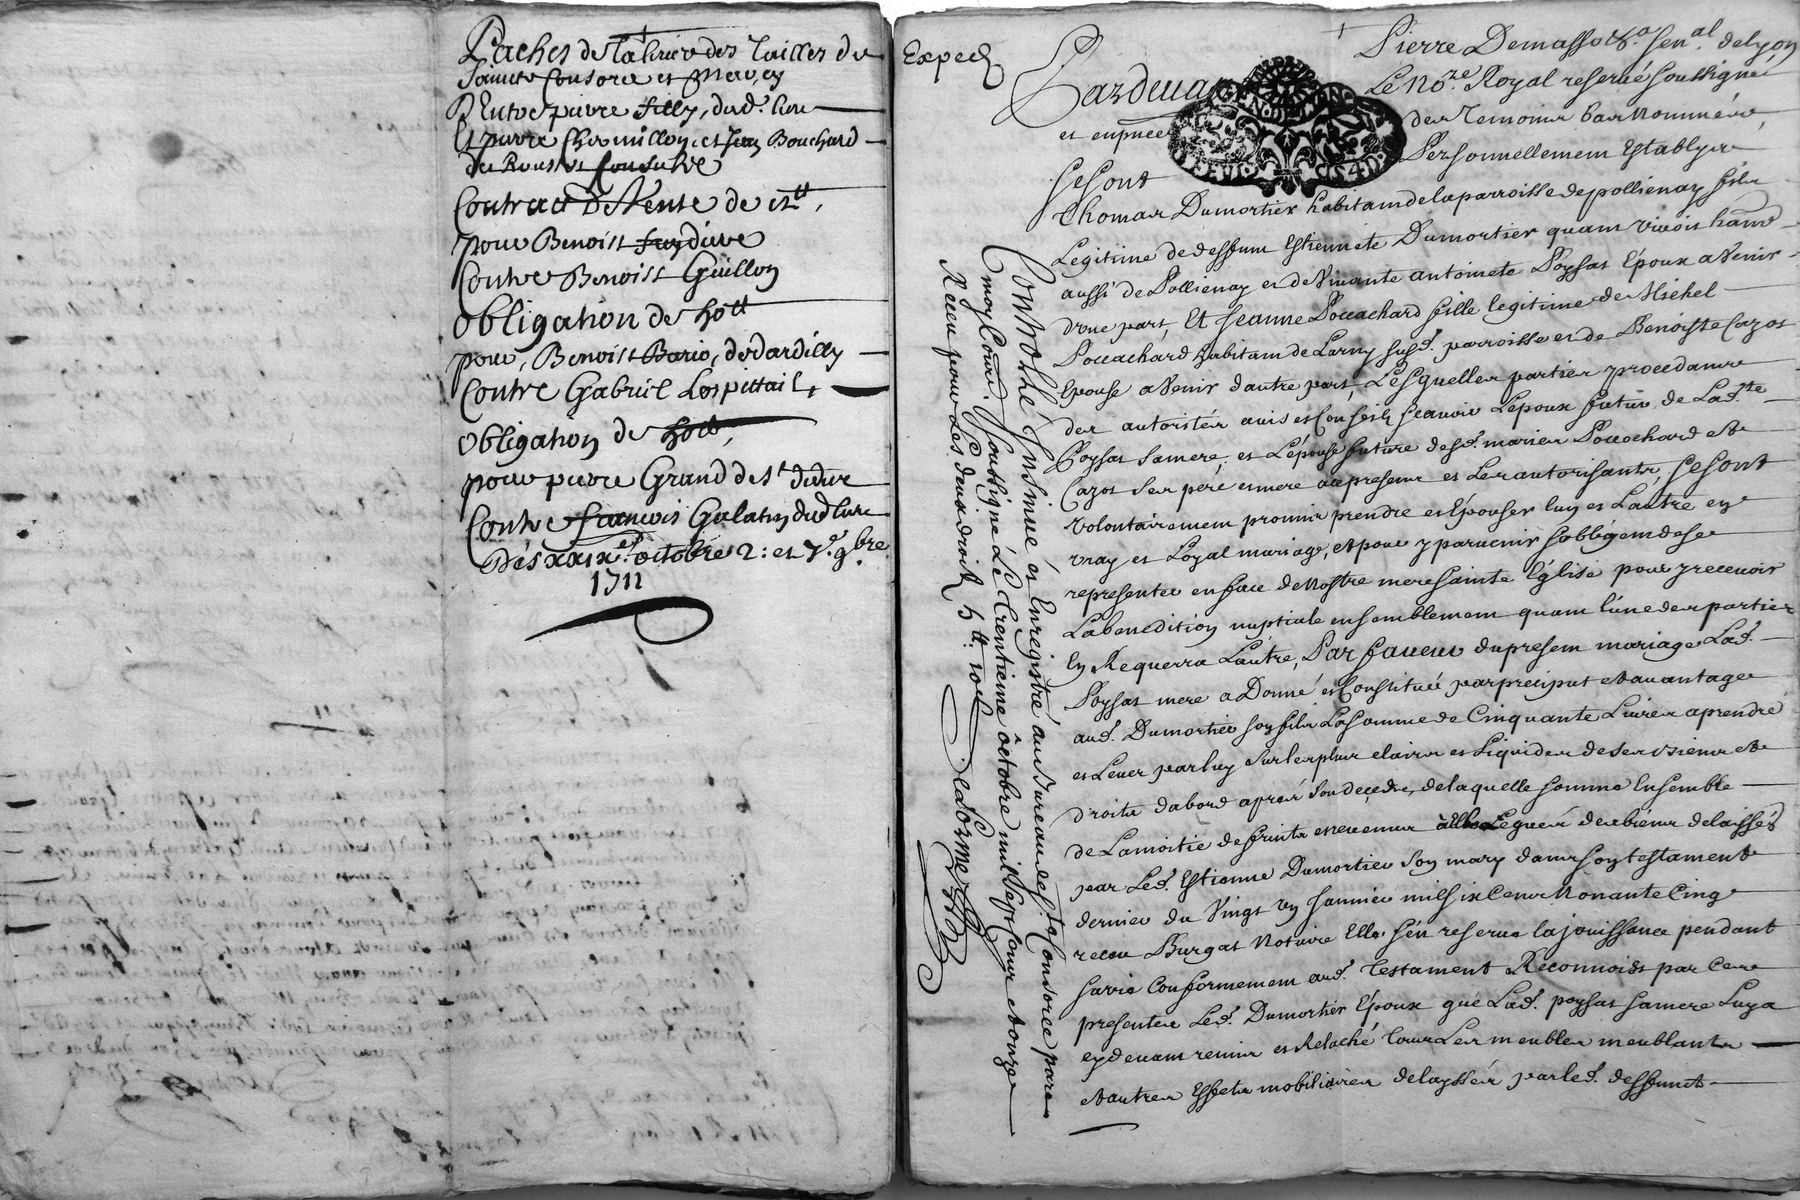 Paches de la Levee des Tailles de
Sainte Consorce et Mercy
Entre pierre filly, dud. lieu
Et pierre Chermillon et Jean Bouchard
de
Contract de Vente de
pour Benoist
Contre Benoist Guillon
Obligation de
pour, Benoist Bario, de dardilly
Contre Gabriel Lospittail,
Obligation de
pour pierre Grand de St didier
Contre francois Galatin dud lieu
Des xxixe. octobre 2: et 7e. 9bre
1711
Exped
Pardevant
Pierre Demasso &a Senal. de lyon
Le Nore. Royal reservé soussigné
et en presence
des temoins bas Nommés,
Se Sont
Personnellement Establys
Thomas Dumortier habitant de la parroisse de pollienay fils
Legitime de deffunt Estiennete Dumortier quant vivoit habt
aussi de Pollienay et de Vivante antoinete Poysat Epoux a Venir
d'une part, Et Jeanne Pouachard fille legitime de Michel
Pouachard habitant de Larny susd. parroisse et de Benoiste Cazot
Epouse a Venir d'autre part, Lesquelles parties procedants
des autorités avis et Conseils scavoir L'epoux futur de Lad.te
Poysat sa mere, et L'épouse future desd. mariés Pouachard et
Cazot ses peré et mere acy presents et Les autorisants, se sont
volontairement promis prendre et Épouser luy et L'autre en
vray et Loyal mariage, et pour y parvenir s'obligent de se
representer en face de Nostre mere sainte Eglise pour y recevoir
La benediction nuptiale ensemblement quant l'une des parties
En Requerra L'autre, Par faveur du present mariage Lad.
Poysat mere a Donné et Constitué par preciput et avantage
aud. Dumortier son fils La somme de Cinquante Livres a prendre
et Lever par luy sur les plus clairs et Liquides de ses biens et
droits d'abord aprés son decedz, de laquelle somme Ensemble
de La moitié des fruits et revenus a elle Legués des biens delaissés
par Led. Estienne Dumortier son mary dans son testament
dernier du Vingt un Janvier mil six Cent Nonante Cinq
receu Burgat Notaire Elle s'en reserve la jouissance pendant
sa vie Conformement aud. Testament Reconnoist par Ces
presentes Led. Dumortier Epoux que Lad. poysat sa mere Luy a
cy devant remis et Relaché tous Les meubles meublants
et autres Effets mobiliaires delayssés par led. deffunct
Controllé Insinué et Enregistré au Bureau de Ste. Consorce par
moy Comis. soussigné Le Trentieme octobre mil Sept Cent et onze
Receu pour Les deux droits 5tt. 10s
Delorme